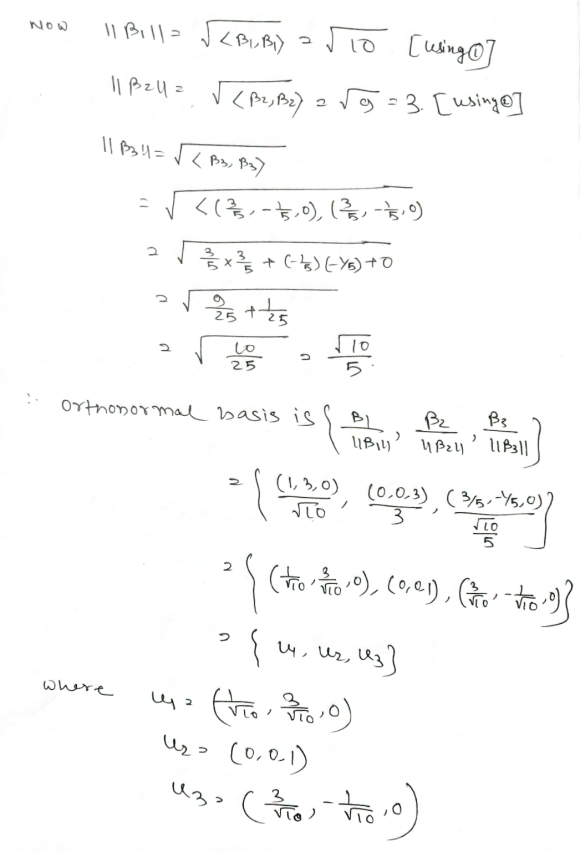 Now ||β₁|| = √<β₁,β₁> = √10 [using①]
||β₂|| = √<β₂,β₂> = √9 = 3. [using②]
||β₃|| = √<β₃,β₃>
= √<(3/5, -1/5, 0), (3/5, -1/5, 0)
= √3/5 × 3/5 + (-1/5)(-1/5) + 0
= √9/25 + 1/25
= √10/25 = √10/5.
∴ orthonormal basis is {β₁/||β₁||, β₂/||β₂||, β₃/||β₃||}
= {(1,3,0)/√10, (0,0,3)/3, (3/5,-1/5,0)/(√10/5)}
= {(1/√10, 3/√10, 0), (0,0,1), (3/√10, -1/√10, 0)}
= {u₁, u₂, u₃}
where u₁ = (1/√10, 3/√10, 0)
u₂ = (0,0,1)
u₃ = (3/√10, -1/√10, 0)